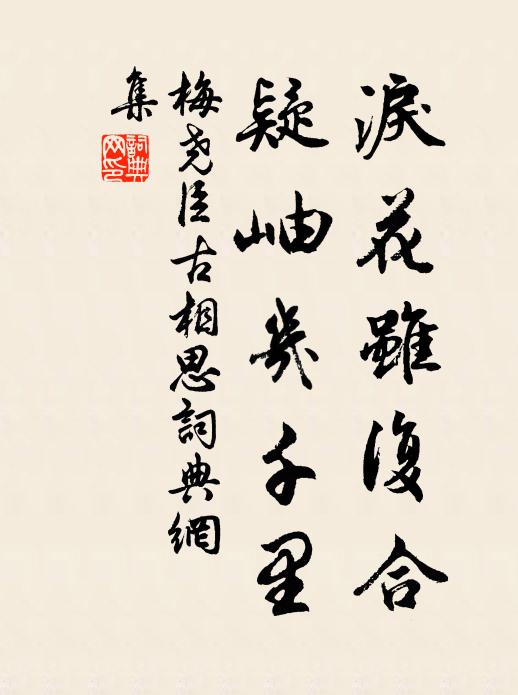 淚花雖復合
疑岫幾千里
梅尧臣古相思詞典網
集
詞典
网印